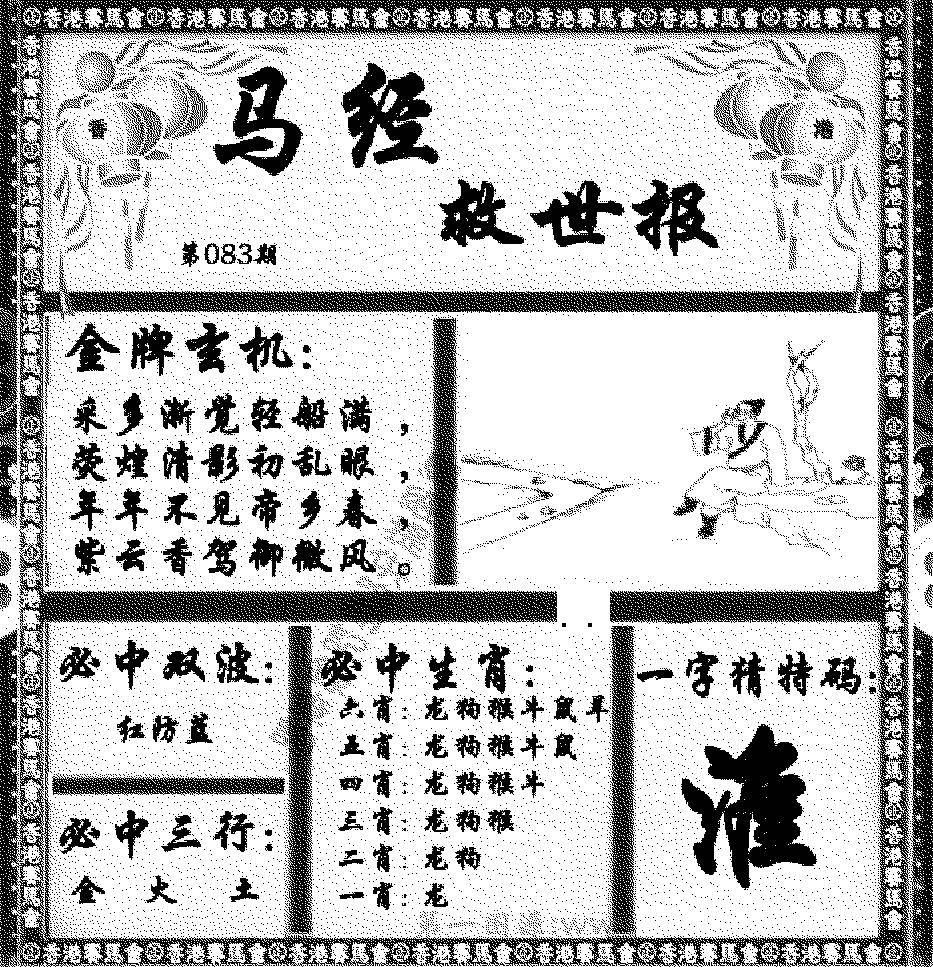 香港賽馬會 香港賽馬會 香港賽馬會 香港賽馬會 香港賽馬會 香港賽馬會 香港賽馬會
马经
香
港
救世报
第083期
金牌玄机:
采多渐觉轻船满,
荧煌清影初乱眼,
年年不见帝乡春,
紫云香驾御微风。
必中双波:
红防蓝
必中三行:
金 火 土
必中生肖:
六肖:龙狗猴牛鼠羊
五肖:龙狗猴牛鼠
四肖:龙狗猴牛
三肖:龙狗猴
二肖:龙狗
一肖:龙
一字猜特码:
香港賽馬會 香港賽馬會 香港賽馬會 香港賽馬會 香港賽馬會 香港賽馬會 香港賽馬會